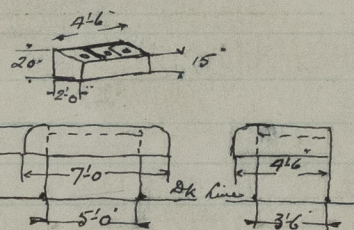 4'-6"
20"
15"
2'-0"
7'-0"
4'-6"
Dk Line
5'-0"
3'-6"